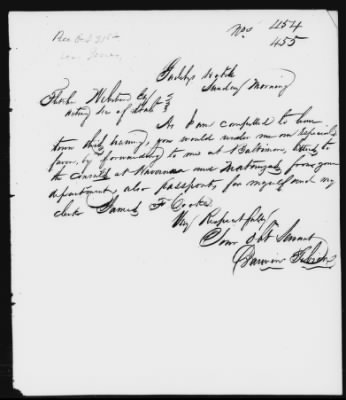 Rec Oct 31st
No 454
455
Gadsbys Hotel
Sunday Morning
Fletcher Webster Esq
Acting Sec of State
As I am compelled to leave
town this evening, you would render me an especial
favor, by forwarding to me at Baltimore, letters to
the consuls at Havanna and Matanzas from your
department, also passports for myself and my
clerk James F Cooke
Very Respectfully
Your Obt Servant